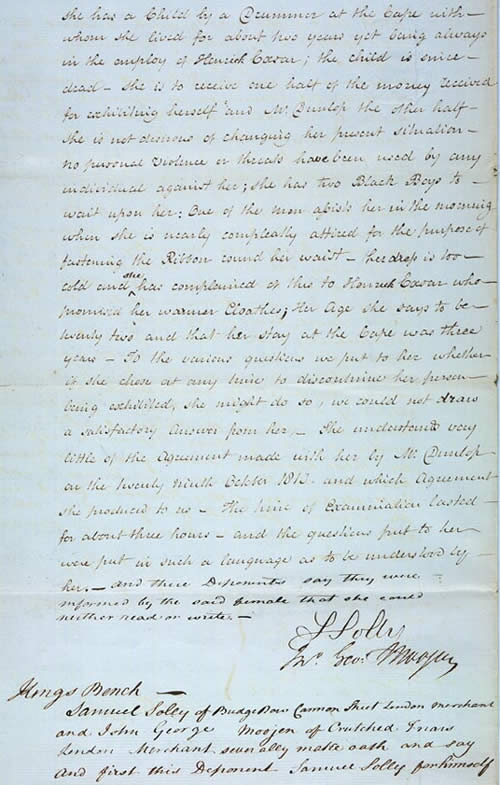 she has a Child by a Drummer at the Cape with
whom she lived for about two years yet being always
in the employ of Henrick Cæsar; the child is since
dead – she is to receive one half of the money received
for exhibiting herself and Mr. Dunlop the other half –
She is not desirous of changing her present situation –
no personal violence or threats have been used by any
individual against her; she has two Black Boys to
wait upon her: One of the men assists her in the morning
when she is nearly compleatly attired for the purpose of
fastening the Ribbon round her waist – her dress is too
cold and she has complained of this to Henrick Cæsar who
promised her warmer Cloathes; Her Age she says to be
twenty two and that her stay at the Cape was three
years – To the various questions we put to her whether
if she chose at any time to discontinue her person
being exhibited, she might do so, we could not draw
a satisfactory answer from her – She understands very
little of the Agreement made with her by Mr. Dunlop
on the twenty ninth October 1810 and which Agreement
she produced to us – The time of Examination lasted
for about three hours – and the questions put to her
were put in such a language as to be understood by
her – and these Deponents say they were
informed by the said female that she could
neither read or write –
S Solly
Jno. Geo: Moojen
Kings Bench
Samuel Solly of Budge Row Cannon Street London Merchant
and John George Moojen of Crutched Friars
London Merchant severally make oath and say
and first this Deponent Samuel Solly for himself